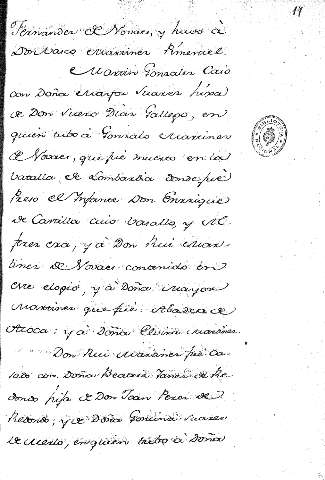 19
Fernandez de Novaes, y huvo à
Don Vasco Martinez Pimentel.
Martin Gonzalez Caió
con Doña Mayor Suarez hixa
de Don Suero Diaz Gallego, en
quien tubo à Gonzalo Martinez
de Novaes, que fué muerto en la
vatalla de Lombardia donde fué
Preso el Infante Don Enrrique
de Castilla cuio vasallo, y Al
ferez era, y à Don Rui Mar-
tinez de Novaes contenido en
este elogio, y à Doña Mayor
Martinez que fué Abadesa de
Arouca: y à Doña Elvira Martinez.
Don Rui Martinez fué Ca-
sado con Doña Beatriz Yanez de Re
dondo hija de Don Joan Perez de
Redondo; y de Doña Gontinda Suarez
de Merlo, en quien tubo à Doña